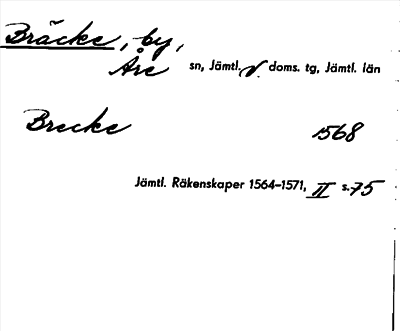 Bräcke, by,
Åre sn, Jämtl. v. doms. tg, Jämtl. län
Brecke 1568
Jämtl. Räkenskaper 1564-1571, II s. 75